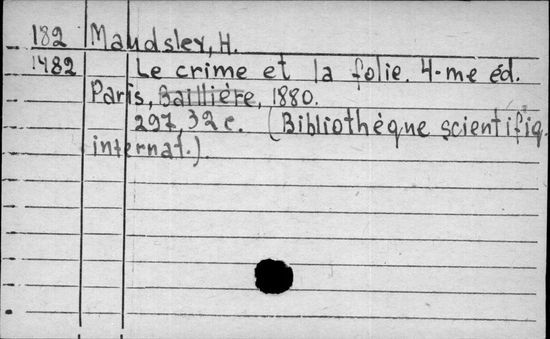 182 Maudsley, H.
1482 Le crime et la folie. 4-me éd.
Paris, Baillière, 1880.
297, 32 c. (Bibliothèque scientifiq.
internat.).